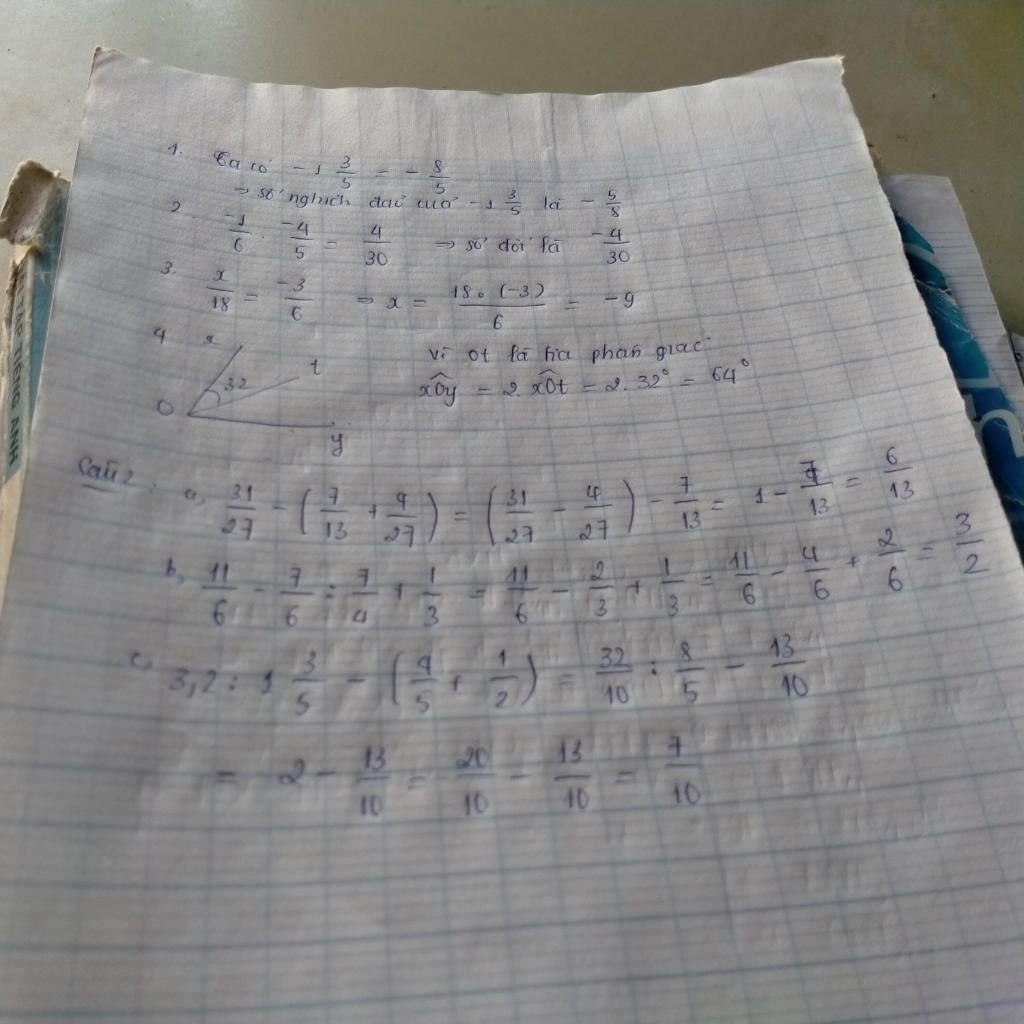 1. Ta có -1 3/5 = - 8/5
⇒ số nghịch đảo của -1 3/5 là - 5/8
2. -1/6 . -4/5 = 4/30 ⇒ số đối là -4/30
3. x/18 = -3/6 ⇒ x = 18.(-3)/6 = -9
4 x t 32 O y
Vì Ot là tia phân giác
xOy = 2. xOt = 2. 32° = 64°
Câu 2: a, 31/27 - (7/13 + 4/27) = (31/27 - 4/27) - 7/13 = 1 - 7/13 = 6/13
b, 11/6 - 7/6 : 7/4 + 1/3 = 11/6 - 2/3 + 1/3 = 11/6 - 4/6 + 2/6 = 3/2
c, 3,2 : 1 3/5 - (4/5 + 1/2) = 32/10 : 8/5 - 13/10
= 2 - 13/10 = 20/10 - 13/10 = 7/10
TIẾNG ANH